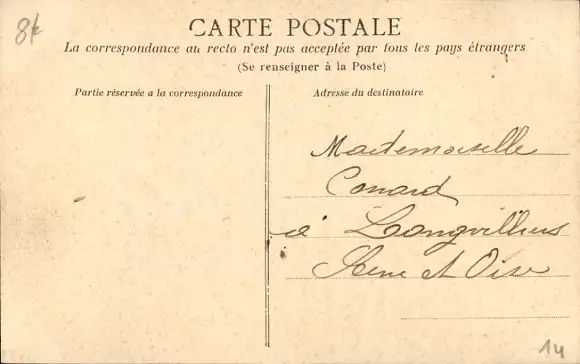 8f
CARTE POSTALE
La correspondance au recto n'est pas acceptée par tous les pays étrangers
(Se renseigner à la Poste)
Partie réservée a la correspondance
Adresse du destinataire
Mademoiselle
Conard
à Longvilliers
Seine et Oise
14